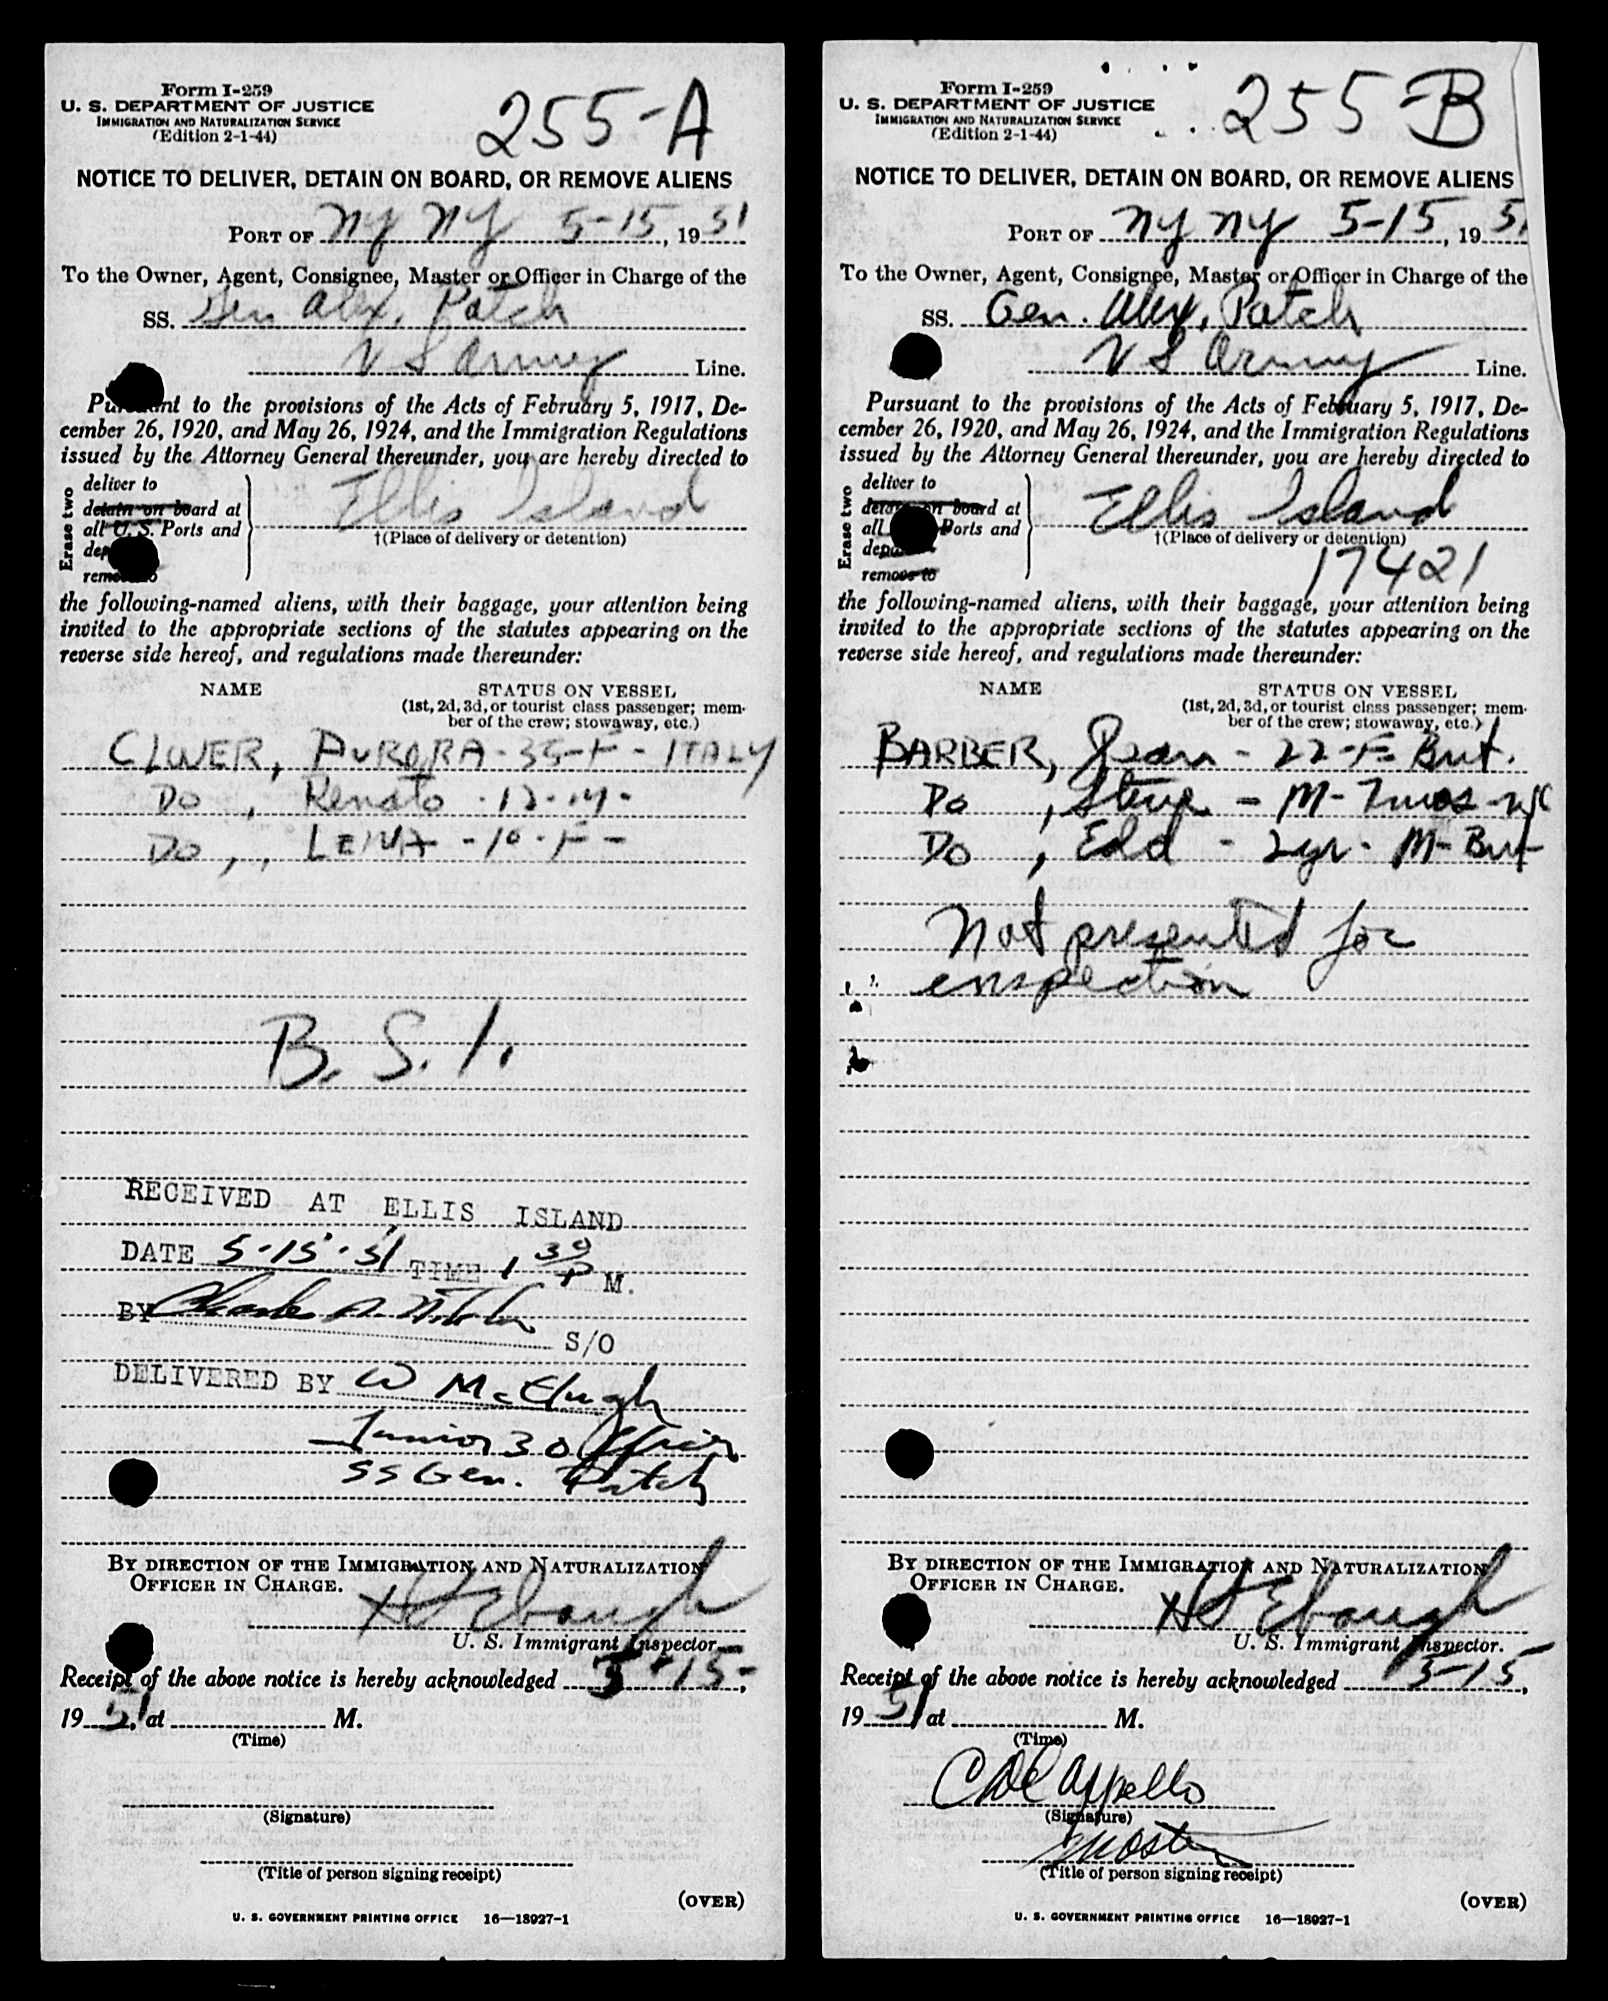 Form I-259
U. S. DEPARTMENT OF JUSTICE
IMMIGRATION AND NATURALIZATION SERVICE
(Edition 2-1-44)
255-A
NOTICE TO DELIVER, DETAIN ON BOARD, OR REMOVE ALIENS
PORT OF NY NY 5-15, 1951
To the Owner, Agent, Consignee, Master or Officer in Charge of the
SS. Gen Alex. Patch
U S Army Line.
Pursuant to the provisions of the Acts of February 5, 1917, De-
cember 26, 1920, and May 26, 1924, and the Immigration Regulations
issued by the Attorney General thereunder, you are hereby directed to
Erase two
deliver to
detain on board at
all U. S. Ports and
dep
remove to
Ellis Island
†(Place of delivery or detention)
the following-named aliens, with their baggage, your attention being
invited to the appropriate sections of the statutes appearing on the
reverse side hereof, and regulations made thereunder:
NAME STATUS ON VESSEL
(1st, 2d, 3d, or tourist class passenger; mem-
ber of the crew; stowaway, etc.)
AURORA - 35-F - ITALY
Do , Renato - 12 - M -
Do , , LENA - 10 - F -
B. S. I.
RECEIVED AT ELLIS ISLAND
DATE 5-15-51 TIME 1 30 P M.
BY Charles A. S/O
DELIVERED BY W McElugh
Junior 3 Officer
SS Gen. Patch
BY DIRECTION OF THE IMMIGRATION AND NATURALIZATION
OFFICER IN CHARGE.
H Ebaugh
U. S. Immigrant Inspector.
Receipt of the above notice is hereby acknowledged 5-15-,
1951, at M.
(Time)
(Signature)
(Title of person signing receipt)
(OVER)
U. S. GOVERNMENT PRINTING OFFICE 16—18927-1
Form I-259
U. S. DEPARTMENT OF JUSTICE
IMMIGRATION AND NATURALIZATION SERVICE
(Edition 2-1-44)
255-B
NOTICE TO DELIVER, DETAIN ON BOARD, OR REMOVE ALIENS
PORT OF NY NY 5-15, 1951
To the Owner, Agent, Consignee, Master or Officer in Charge of the
SS. Gen. Alex. Patch
U S Army Line.
Pursuant to the provisions of the Acts of February 5, 1917, De-
cember 26, 1920, and May 26, 1924, and the Immigration Regulations
issued by the Attorney General thereunder, you are hereby directed to
Erase two
deliver to
detain on board at
all Ports and
remove to
Ellis Island
†(Place of delivery or detention)
17421
the following-named aliens, with their baggage, your attention being
invited to the appropriate sections of the statutes appearing on the
reverse side hereof, and regulations made thereunder:
NAME STATUS ON VESSEL
(1st, 2d, 3d, or tourist class passenger; mem-
ber of the crew; stowaway, etc.)
BARBER, Jean - 22-F- Brit.
Do , - M - 7 mos -
Do , Edd - 2 yr - M - Brit
Not presented for
inspection
BY DIRECTION OF THE IMMIGRATION AND NATURALIZATION
OFFICER IN CHARGE.
H Ebaugh
U. S. Immigrant Inspector.
Receipt of the above notice is hereby acknowledged 5-15,
1951 at M.
(Time)
(Signature)
(Title of person signing receipt)
(OVER)
U. S. GOVERNMENT PRINTING OFFICE 16—18927-1